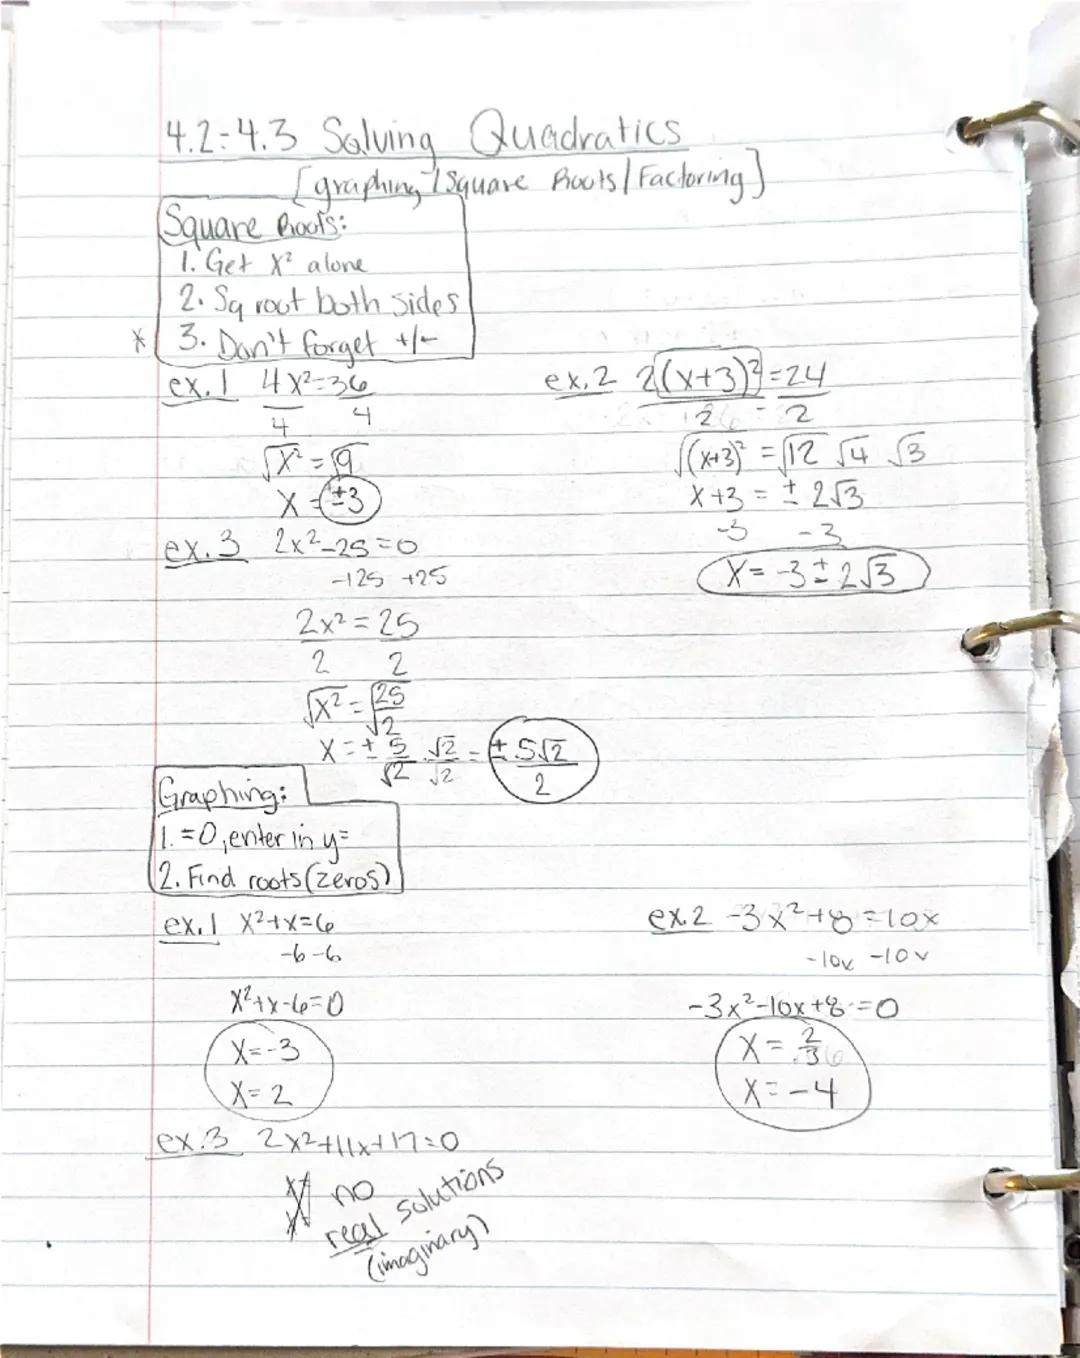 4.2-4.3 Solving Quadratics
[graphing/Square Roots/Factoring]
Square Roots:
1. Get x² alone
2. Sq root both sides
* 3. Don't forget +/-
ex. 1 4x²=36
4 4
√x² = √9
x = ±3
ex. 2 2(x+3)²=24
2 2
√(x+3)² = √12 √4 √3
x+3 = ± 2√3
-3 -3
x= -3 ± 2√3
ex. 3 2x²-25=0
+25 +25
2x² = 25
2 2
√x² = √25/√2
x = ± 5/√2 · √2/√2 = ± 5√2/2
Graphing:
1. =0, enter in y=
2. Find roots (zeros)
ex. 1 x²+x=6
-6 -6
x²+x-6=0
x=-3
x=2
ex. 2 -3x²+8=10x
-10x -10x
-3x²-10x+8=0
x= 2/3
x=-4
ex. 3 2x²+11x+17=0
no
real solutions
(imaginary)